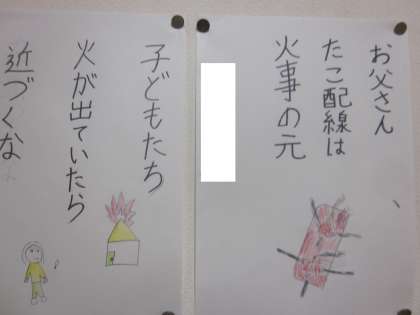 お父さん
たこ配線は
火事の元
子どもたち
火が出ていたら
近づくな